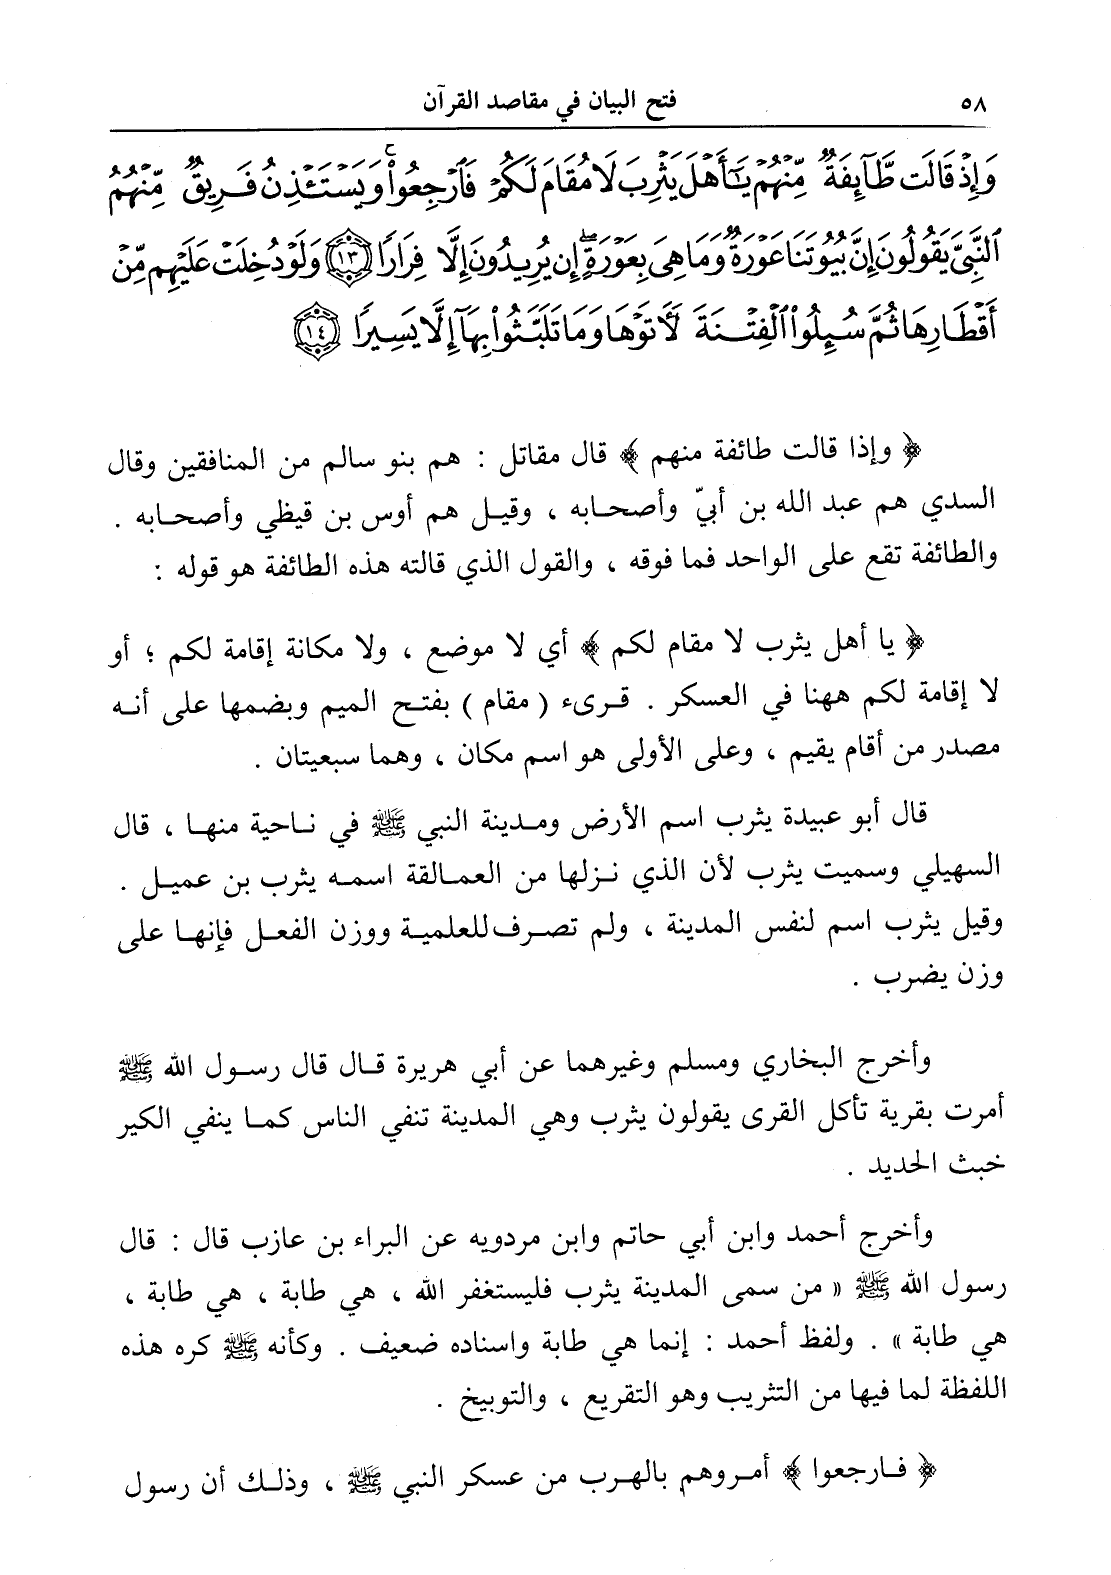 ٥٨
فتح البيان في مقاصد القرآن
وَإِذْ قَالَت طَّآئِفَةٌ مِّنْهُمْ يَٰٓأَهْلَ يَثْرِبَ لَا مُقَامَ لَكُمْ فَٱرْجِعُوا۟ وَيَسْتَـْٔذِنُ فَرِيقٌ مِّنْهُمُ
ٱلنَّبِىَّ يَقُولُونَ إِنَّ بُيُوتَنَا عَوْرَةٌ وَمَا هِىَ بِعَوْرَةٍ إِن يُرِيدُونَ إِلَّا فِرَارًا ١٣ وَلَوْ دُخِلَتْ عَلَيْهِم مِّنْ
أَقْطَارِهَا ثُمَّ سُئِلُوا۟ ٱلْفِتْنَةَ لَأَتَوْهَا وَمَا تَلَبَّثُوا۟ بِهَآ إِلَّا يَسِيرًا ١٤
﴿ وإذا قالت طائفة منهم ﴾ قال مقاتل : هم بنو سالم من المنافقين وقال
السدي هم عبد الله بن أبيّ وأصحابه ، وقيل هم أوس بن قيظي وأصحابه .
والطائفة تقع على الواحد فما فوقه ، والقول الذي قالته هذه الطائفة هو قوله :
﴿ يا أهل يثرب لا مقام لكم ﴾ أي لا موضع ، ولا مكانة إقامة لكم ؛ أو
لا إقامة لكم ههنا في العسكر . قرىء ( مقام ) بفتح الميم وبضمها على أنه
مصدر من أقام يقيم ، وعلى الأولى هو اسم مكان ، وهما سبعيتان .
قال أبو عبيدة يثرب اسم الأرض ومدينة النبي ﷺ في ناحية منها ، قال
السهيلي وسميت يثرب لأن الذي نزلها من العمالقة اسمه يثرب بن عميل .
وقيل يثرب اسم لنفس المدينة ، ولم تصرف للعلمية ووزن الفعل فإنها على
وزن يضرب .
وأخرج البخاري ومسلم وغيرهما عن أبي هريرة قال قال رسول الله ﷺ
أمرت بقرية تأكل القرى يقولون يثرب وهي المدينة تنفي الناس كما ينفي الكير
خبث الحديد .
وأخرج أحمد وابن أبي حاتم وابن مردويه عن البراء بن عازب قال : قال
رسول الله ﷺ « من سمى المدينة يثرب فليستغفر الله ، هي طابة ، هي طابة ،
هي طابة » . ولفظ أحمد : إنما هي طابة واسناده ضعيف . وكأنه ﷺ كره هذه
اللفظة لما فيها من التثريب وهو التقريع ، والتوبيخ .
﴿ فارجعوا ﴾ أمروهم بالهرب من عسكر النبي ﷺ ، وذلك أن رسول